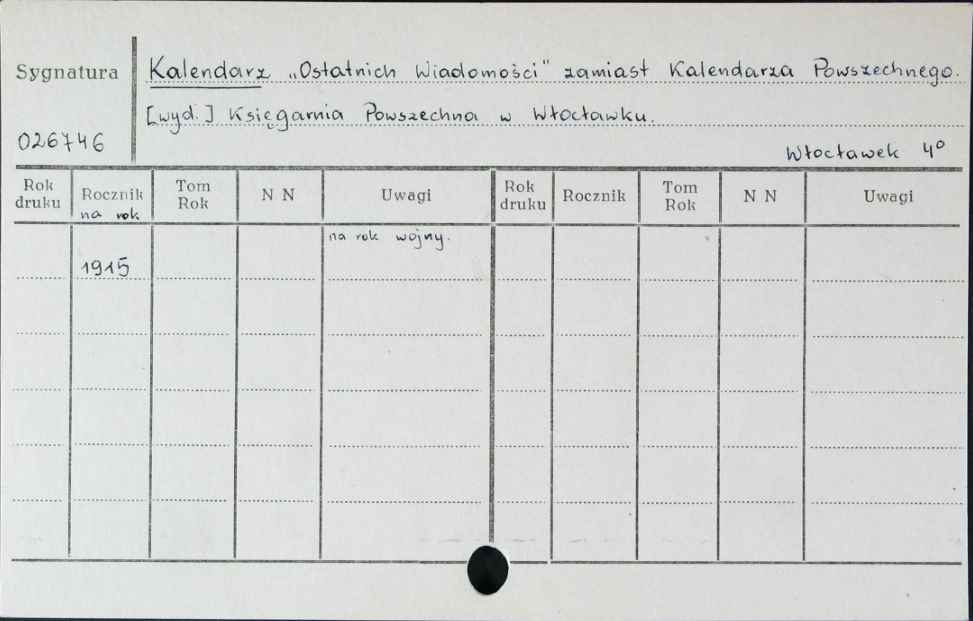 Sygnatura
Kalendarz „Ostatnich Wiadomości" zamiast Kalendarza Powszechnego.
[wyd.] Księgarnia Powszechna w Włocławku.
026746
Włocławek 4º
Rok druku Rocznik na rok Tom Rok N N Uwagi Rok druku Rocznik Tom Rok N N Uwagi
na rok wojny.
1915